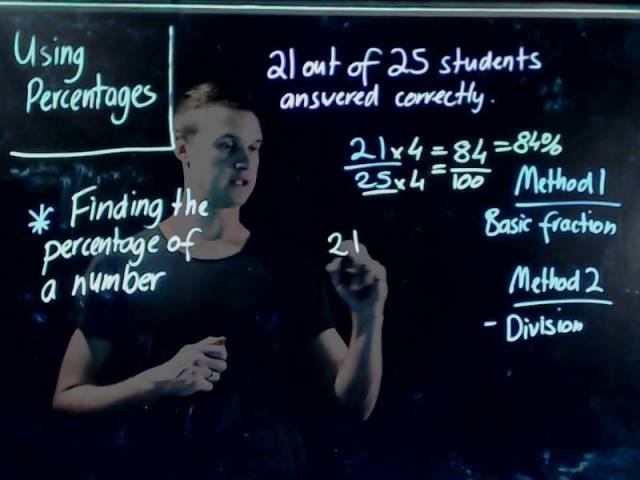 Using
Percentages
21 out of 25 students
answered correctly.
21 x 4 = 84 = 84%
25 x 4 = 100
Method 1
Basic fraction
* Finding the
percentage of
a number
21
Method 2
- Division